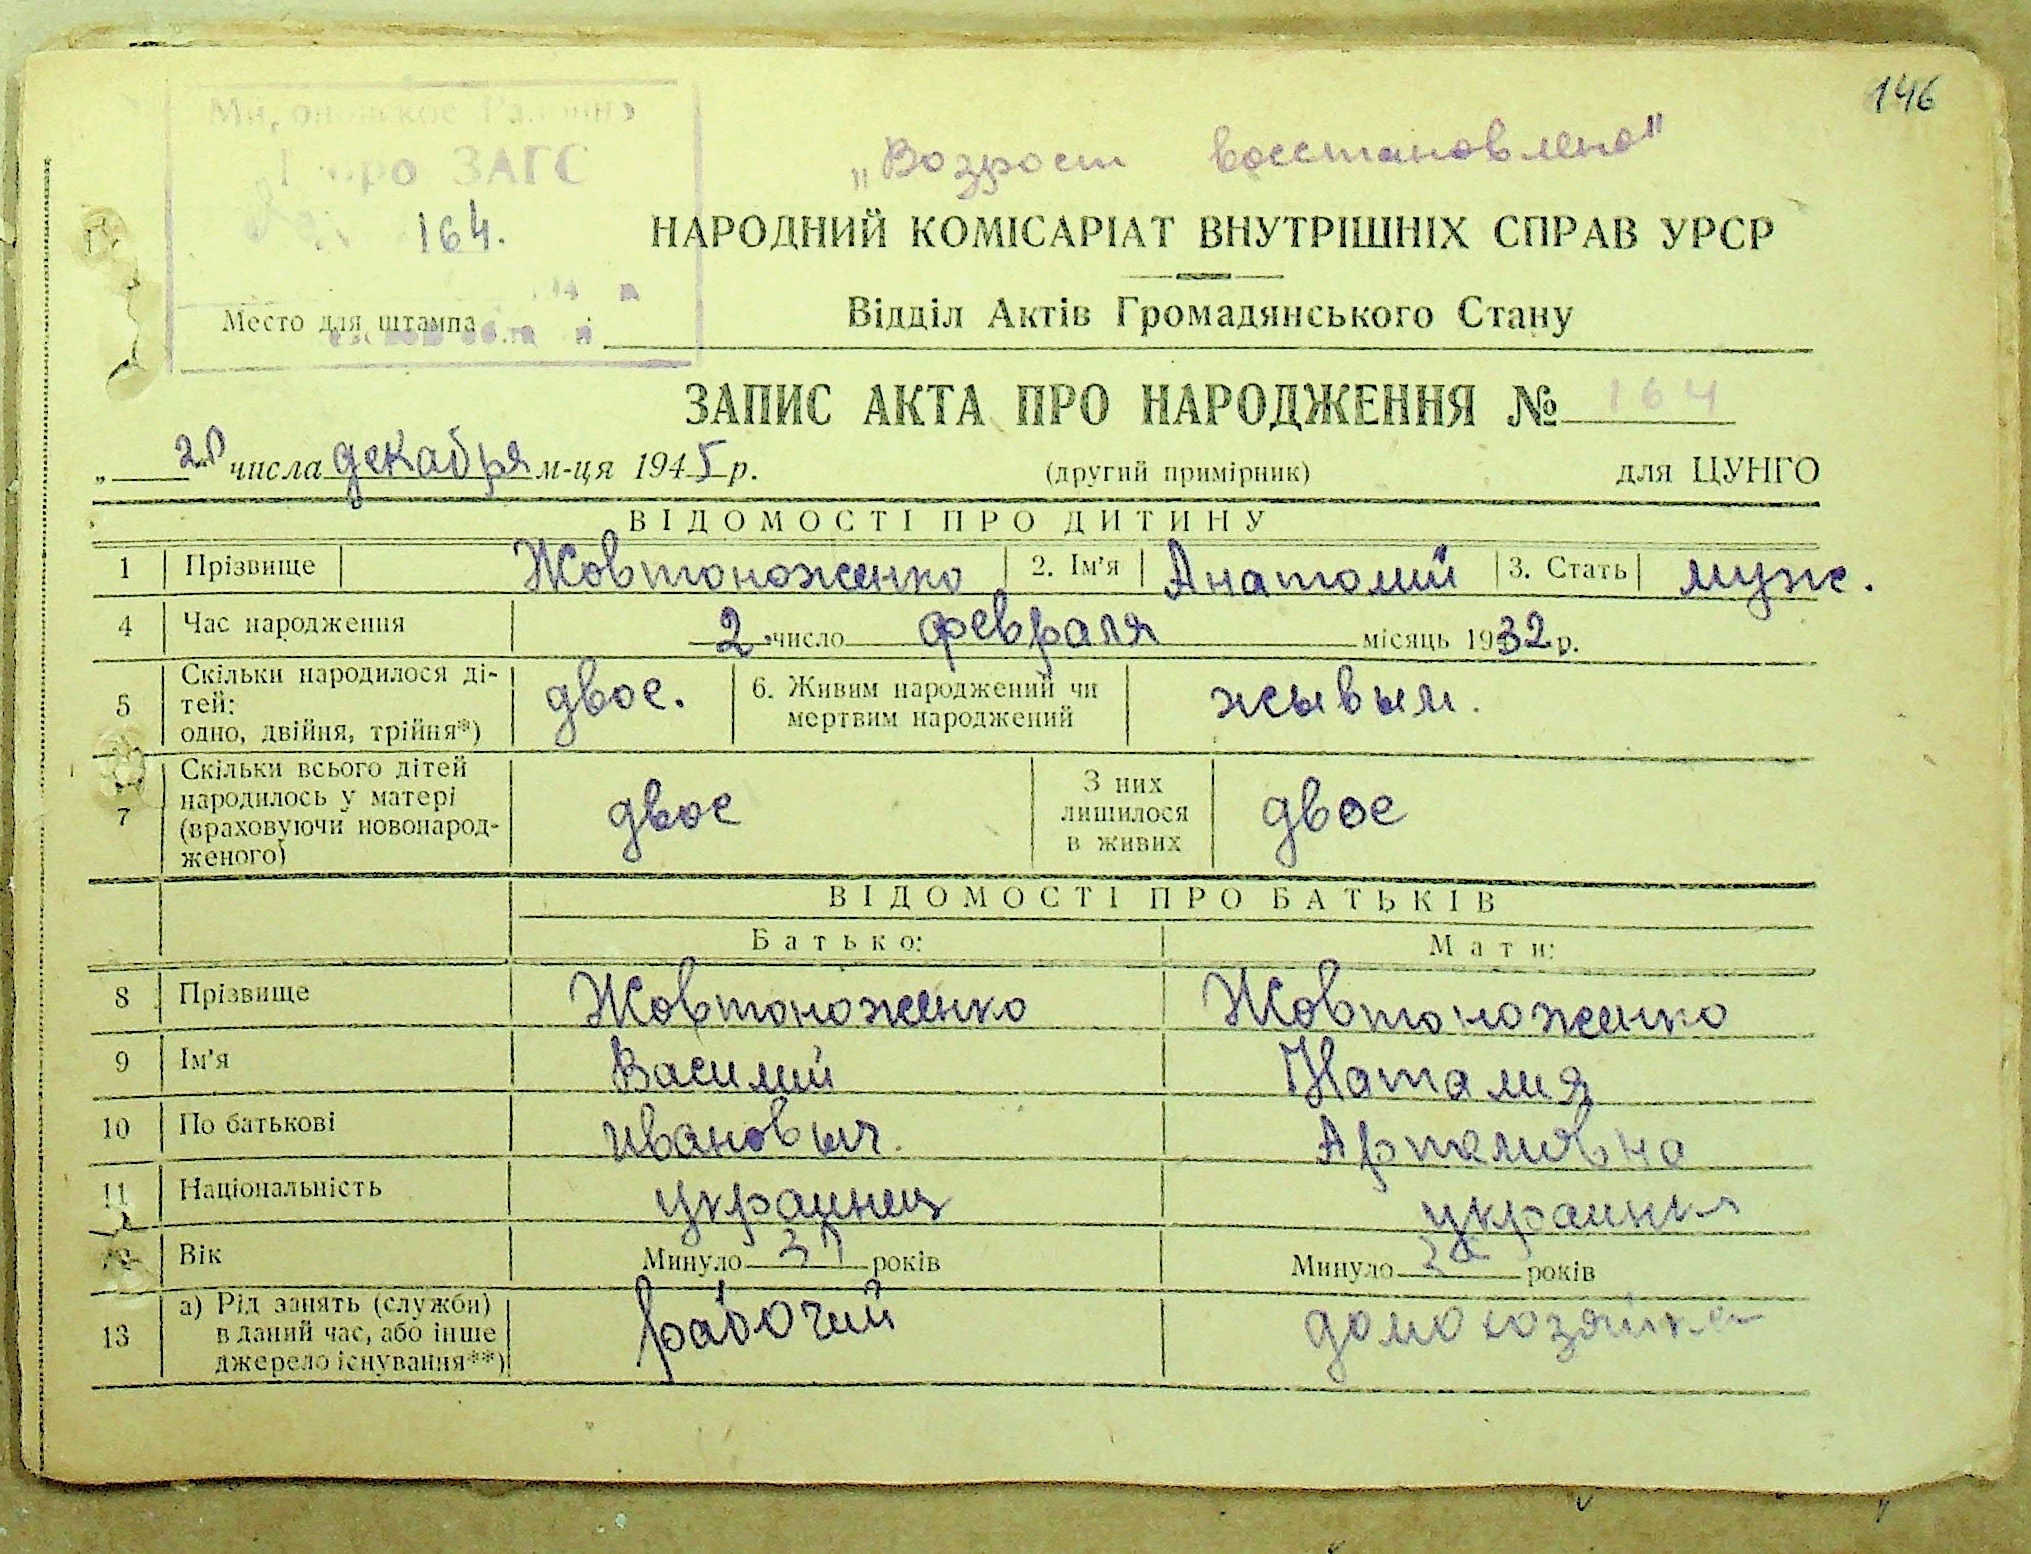 146
„Возрост восстановлено"
Бюро ЗАГС
164.
НАРОДНИЙ КОМІСАРІАТ ВНУТРІШНІХ СПРАВ УРСР
Место для штампа
Відділ Актів Громадянського Стану
ЗАПИС АКТА ПРО НАРОДЖЕННЯ № 164
„ 20 " числа декабря м-ця 1945 р. (другий примірник) для ЦУНГО
ВІДОМОСТІ ПРО ДИТИНУ
1 Прізвище Жовтоноженко 2. Ім'я Анатолий 3. Стать муж.
4 Час народження 2 число февраля місяць 1932 р.
5 Скільки народилося ді-
тей:
одно, двійня, трійня*) двое. 6. Живим народжений чи
мертвим народжений жывым.
7 Скільки всього дітей
народилось у матері
(враховуючи новонарод-
женого) двое З них
лишилося
в живих двое
ВІДОМОСТІ ПРО БАТЬКІВ
Батько: Мати:
8 Прізвище Жовтоноженко Жовтоноженко
9 Ім'я Василий Наталия
10 По батькові Ивановыч. Артемовна
11 Національність украинец украинка
12 Вік Минуло років Минуло років
13 а) Рід занять (служби)
в даний час, або інше
джерело існування**) рабочий домохозяйка